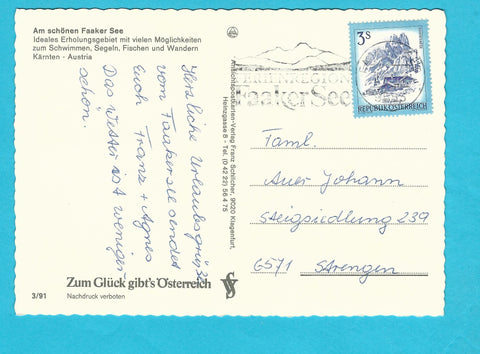 Am schönen Faaker See
Ideales Erholungsgebiet mit vielen Möglichkeiten
zum Schwimmen, Segeln, Fischen und Wandern
Kärnten - Austria
Herzliche Urlaubsgrüße
vom Faakersee sendet
Euch Franz + Agnes
Das Wetter ist weniger
schön.
Zum Glück gibt's Österreich
3/91
Nachdruck verboten
Ansichtspostkarten-Verlag Franz Schilcher, 9020 Klagenfurt,
Tel. (0 42 22) 56 4 75
Faaker See
3S
REPUBLIK ÖSTERREICH
Faml.
Auer Johann
Steigsiedlung 239
6571 Strengen